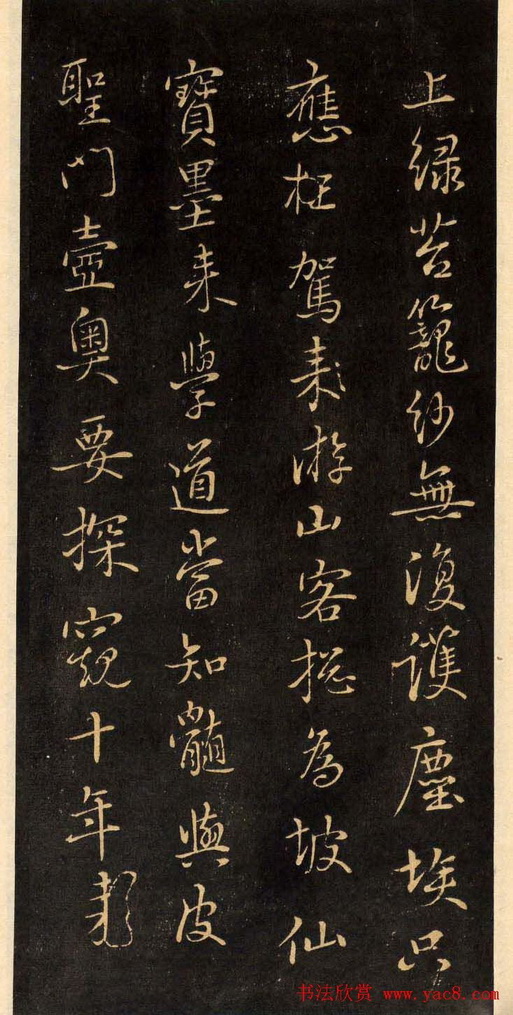 上綠苔籠紗無復護塵埃只
應枉駕来游山客揔為坡仙
寶墨来學道當知髓與皮
聖門壼奧要探窺十年
书法欣赏 www.yac8.com